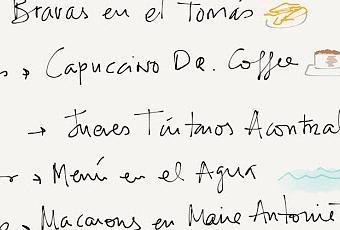 Bravas en el Tomás
s → Capuccino DR. Coffee
→ Jueves Tintanos Acontra
r → Menú en el Agua
→ Macarons en Marie Antoni